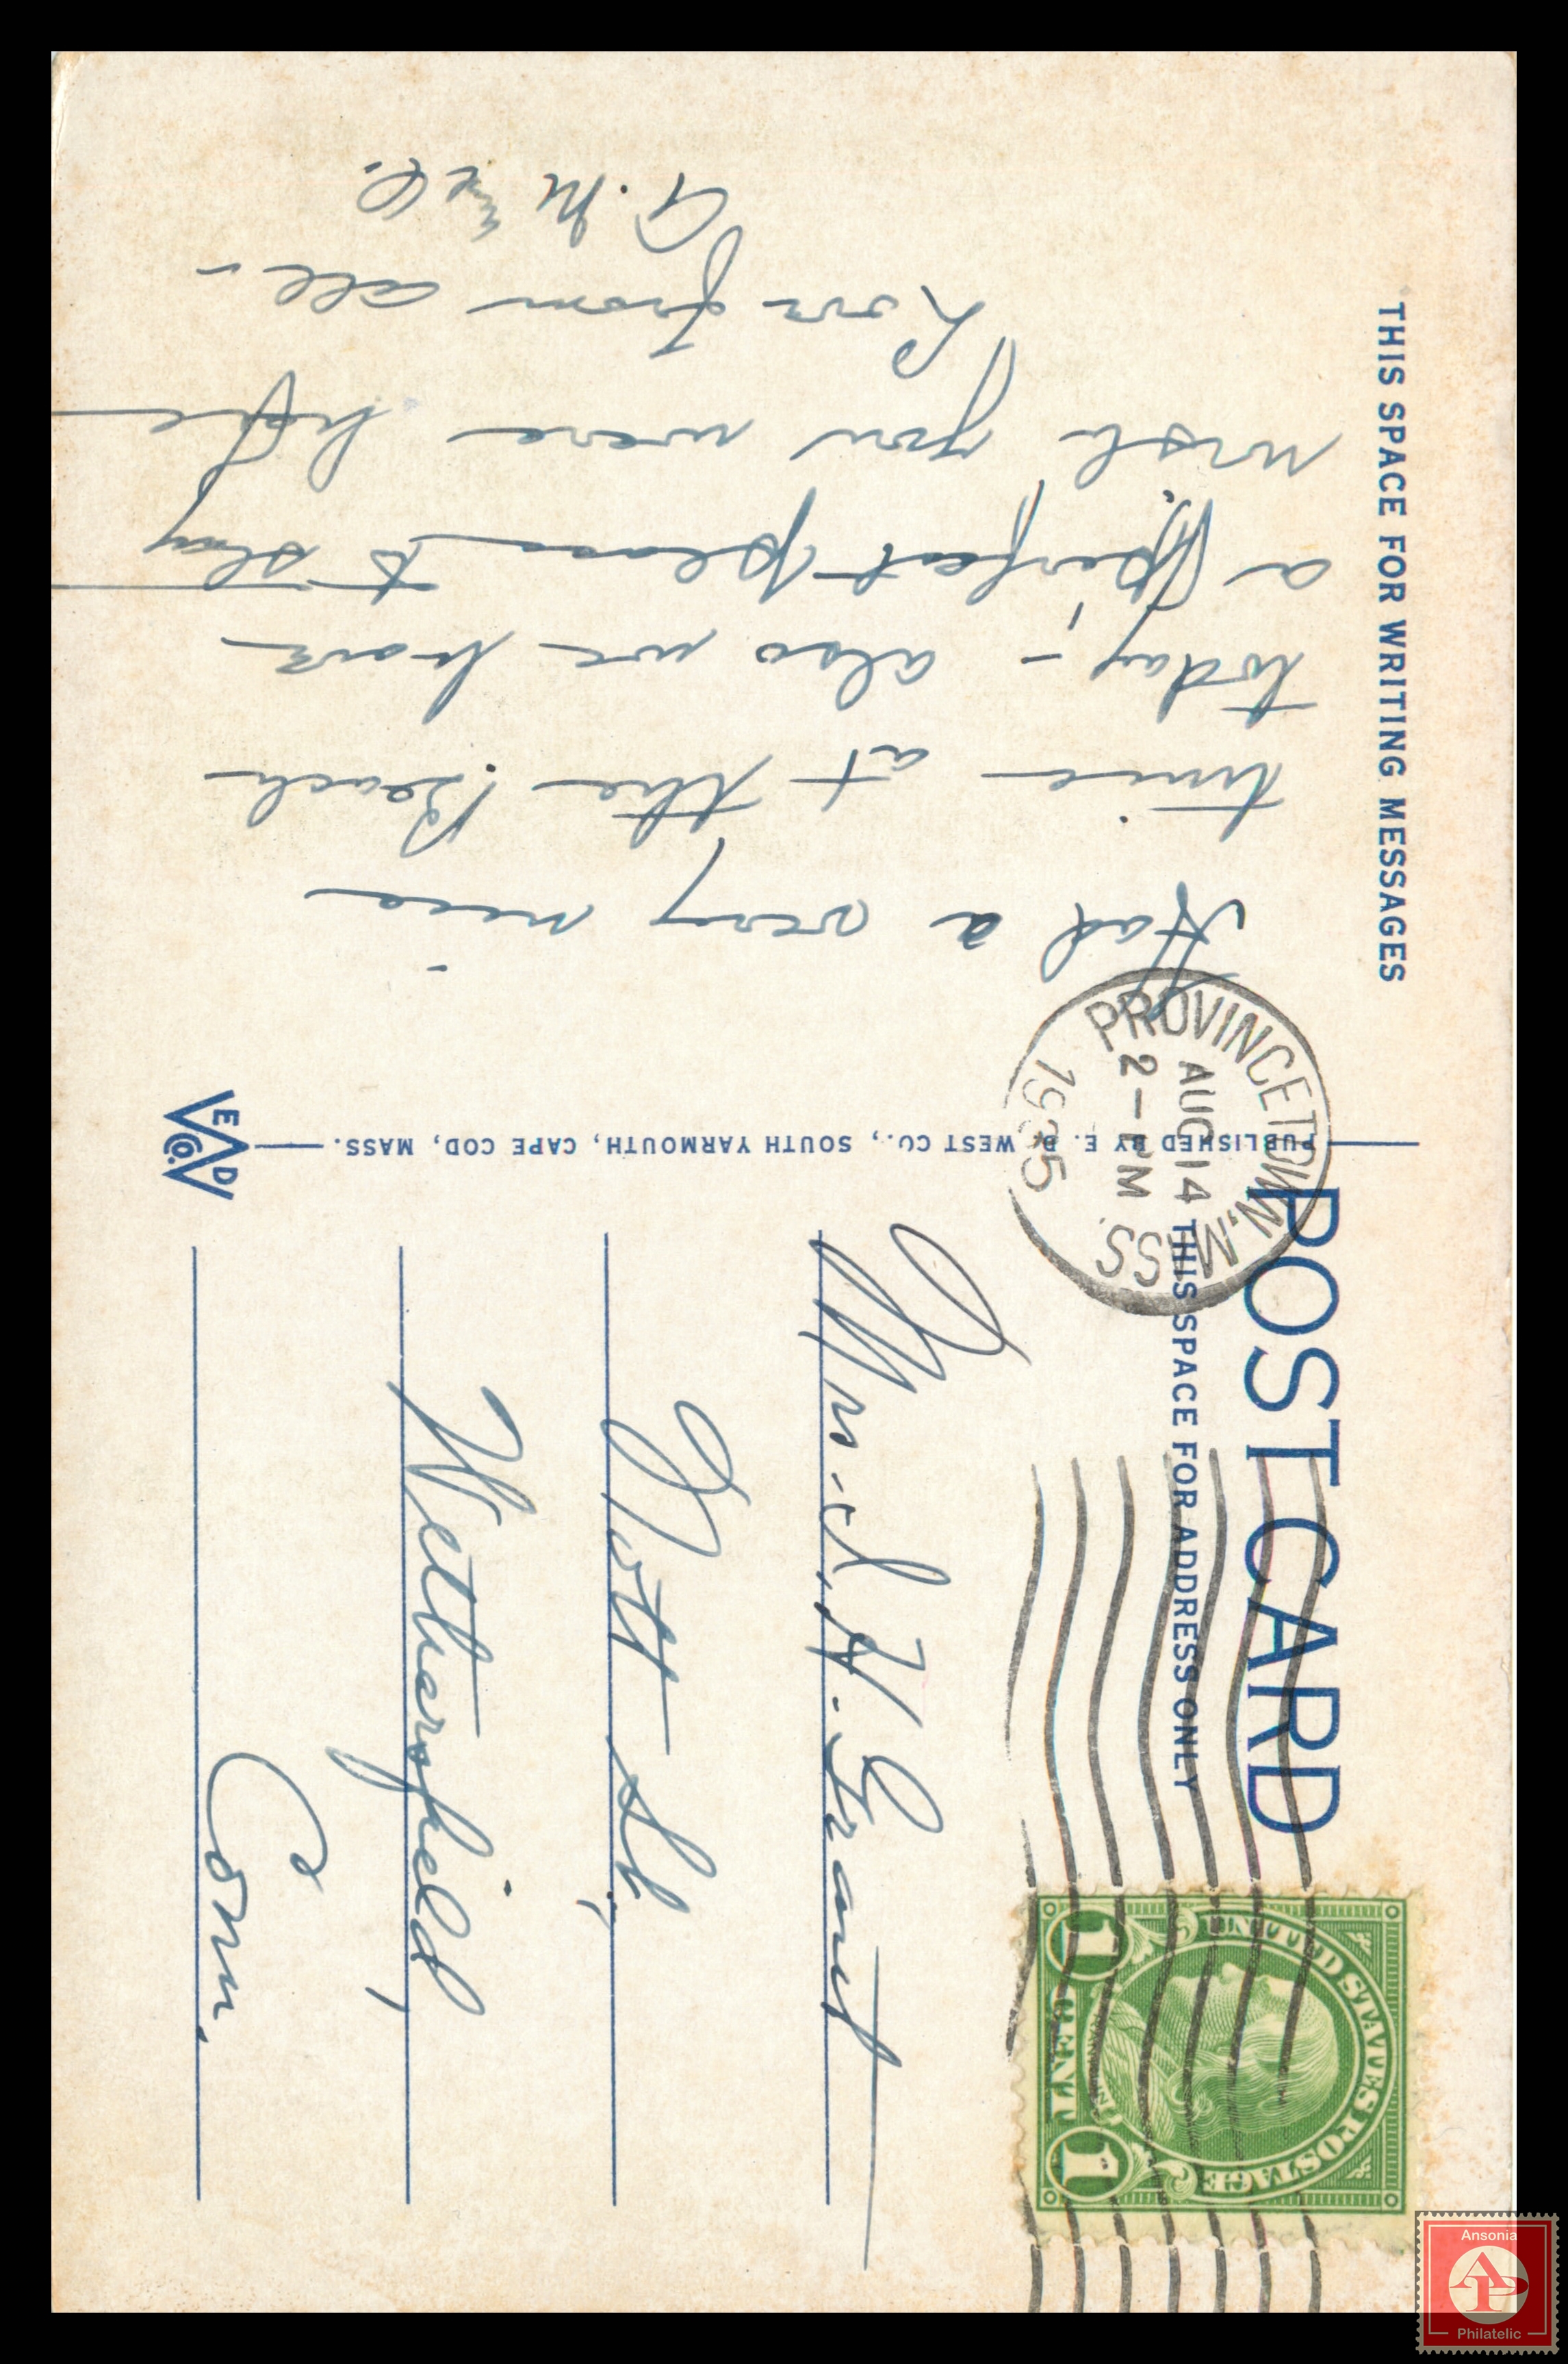 THIS SPACE FOR WRITING MESSAGES
Had a very nice
time at the Beach
today – also we have
a perfect place to stay
wish you were here
Love from all –
POST CARD
THIS SPACE FOR ADDRESS ONLY
PUBLISHED BY E. D. WEST CO., SOUTH YARMOUTH, CAPE COD, MASS.
E D W CO.
PROVINCETOWN, MASS.
AUG 14
2 – PM
1935
UNITED STATES POSTAGE
1 CENT 1
Mrs. J. H. Grant
Nott St.,
Wethersfield,
Conn.
Ansonia
AP
Philatelic